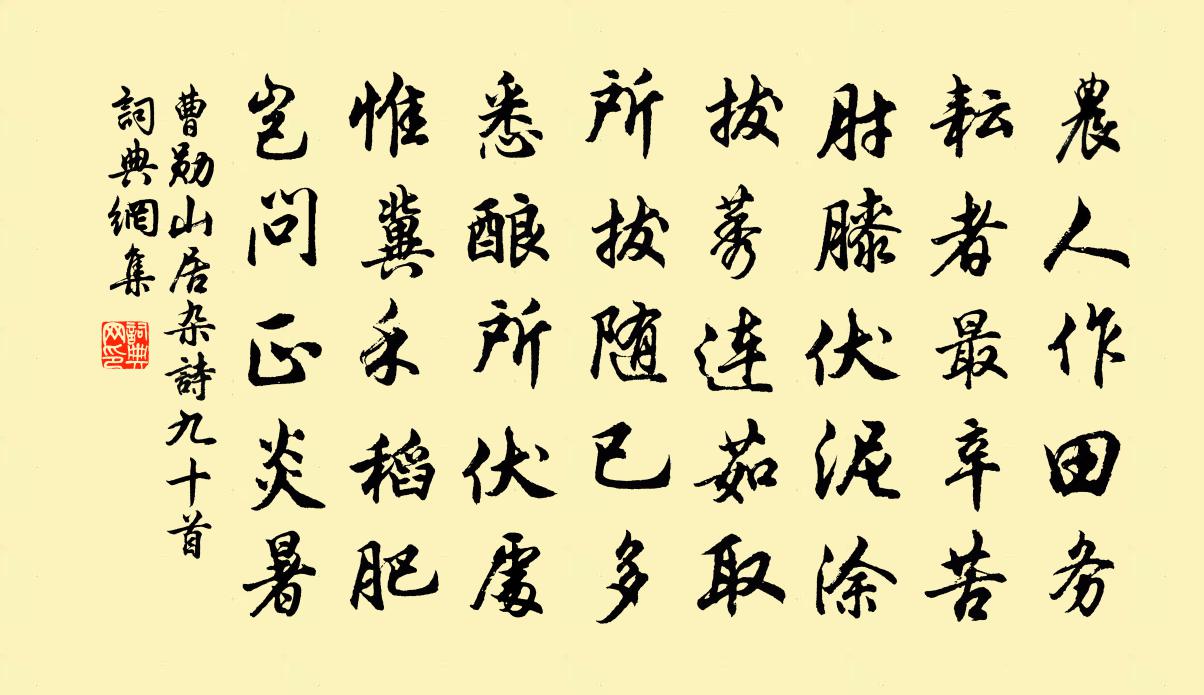 農人作田务
耘者最辛苦
肘膝伏泥涂
拔莠連茹取
所拔随已多
悉酿所伏處
惟冀禾稻肥
岂问正炎暑
曹勛山居杂詩九十首
詞典網集
詞典网印